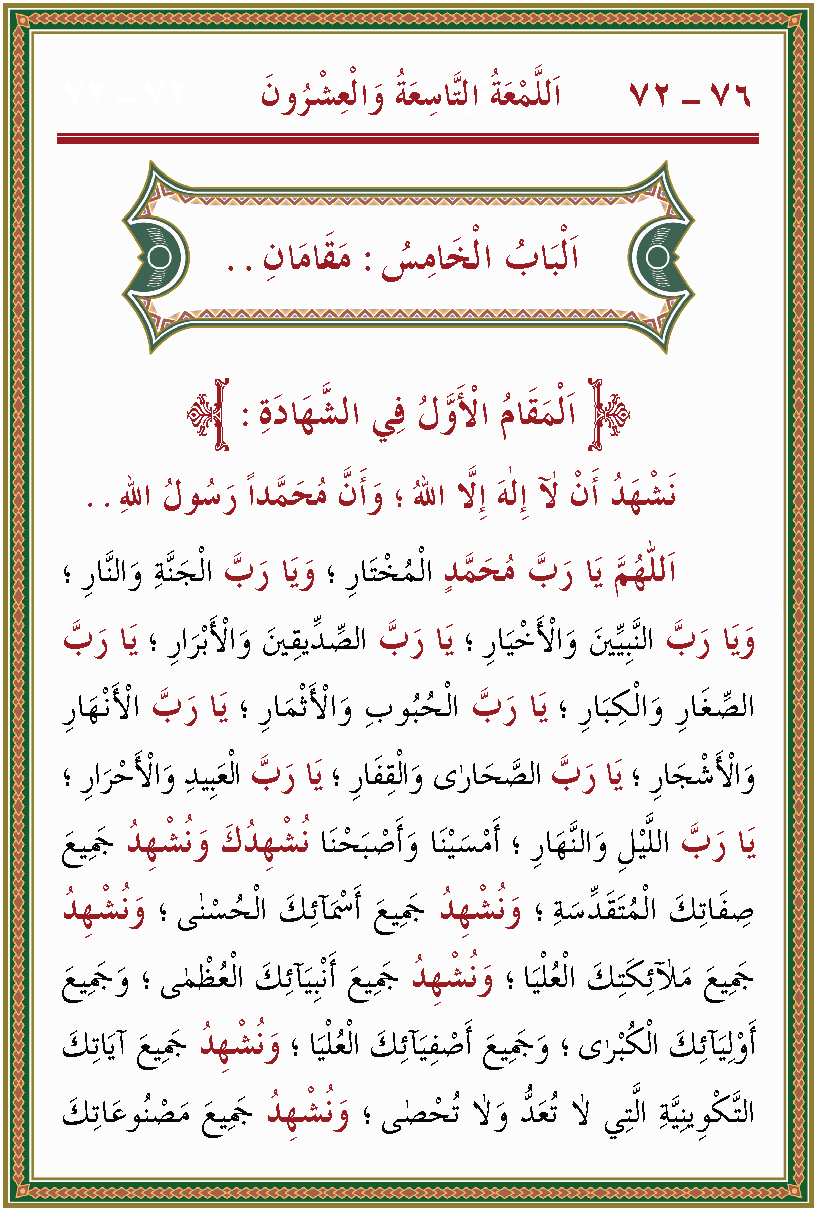 ٧٦ – ٧٢ اَللَّمْعَةُ التَّاسِعَةُ وَالْعِشْرُونَ
اَلْبَابُ الْخَامِسُ : مَقَامَانِ . .
اَلْمَقَامُ الْأَوَّلُ فِي الشَّهَادَةِ :
نَشْهَدُ أَنْ لَآ إِلٰهَ إِلَّا اللهُ ؛ وَأَنَّ مُحَمَّداً رَسُولُ اللهِ . .
اَللّٰهُمَّ يَا رَبَّ مُحَمَّدٍ الْمُخْتَارِ ؛ وَيَا رَبَّ الْجَنَّةِ وَالنَّارِ ؛
وَيَا رَبَّ النَّبِيِّينَ وَالْأَخْيَارِ ؛ يَا رَبَّ الصِّدِّيقِينَ وَالْأَبْرَارِ ؛ يَا رَبَّ
الصِّغَارِ وَالْكِبَارِ ؛ يَا رَبَّ الْحُبُوبِ وَالْأَثْمَارِ ؛ يَا رَبَّ الْأَنْهَارِ
وَالْأَشْجَارِ ؛ يَا رَبَّ الصَّحَارٰى وَالْقِفَارِ ؛ يَا رَبَّ الْعَبِيدِ وَالْأَحْرَارِ ؛
يَا رَبَّ اللَّيْلِ وَالنَّهَارِ ؛ أَمْسَيْنَا وَأَصْبَحْنَا نُشْهِدُكَ وَنُشْهِدُ جَمِيعَ
صِفَاتِكَ الْمُتَقَدِّسَةِ ؛ وَنُشْهِدُ جَمِيعَ أَسْمَآئِكَ الْحُسْنٰى ؛ وَنُشْهِدُ
جَمِيعَ مَلٰٓائِكَتِكَ الْعُلْيَا ؛ وَنُشْهِدُ جَمِيعَ أَنْبِيَآئِكَ الْعُظْمٰى ؛ وَجَمِيعَ
أَوْلِيَآئِكَ الْكُبْرٰى ؛ وَجَمِيعَ أَصْفِيَآئِكَ الْعُلْيَا ؛ وَنُشْهِدُ جَمِيعَ آيَاتِكَ
التَّكْوِينِيَّةِ الَّتِي لَا تُعَدُّ وَلَا تُحْصٰى ؛ وَنُشْهِدُ جَمِيعَ مَصْنُوعَاتِكَ